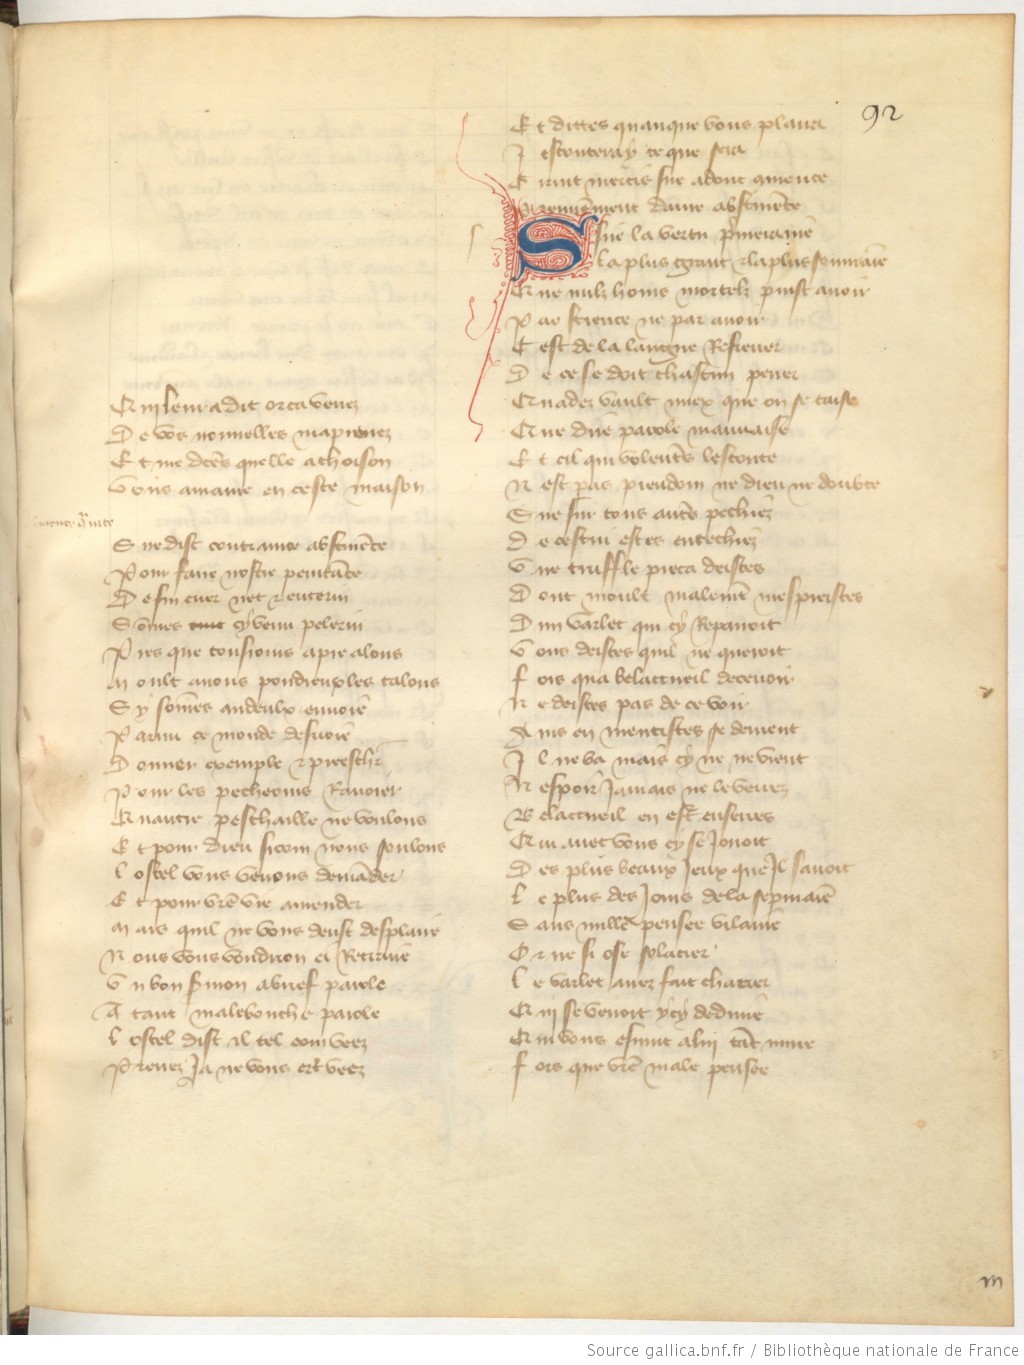 92
Cuj leur a dit or ca venez
De vos nouuelles maprenez
Et me dctẽs quelle achoison
Vous amaine en ceste maison
Sire dist contrainte abstinẽce
Pour faire nostre penitãce
De fin cuer net r enterin
Sõmes cy venu pelerin
Pres que tousiours a pie alons
Moult auons poudreux les talons
Sy sõmes andeulx enuoie
Parmi ce monde desuoie
Donner exemple r preeschr
Pour les pecheours
Cr autre peschaille ne voulons
Et pour dieu sicom nous soulons
Lostel vous venons demãder
Et pour vrẽ vie amender
Mais quil ne vous deust desplaire
Nous vous vouldrion ci Retraire
Vn bon smon a brief parole
A tant malebouche parole
Lostel dist il tel com veez
Prenez Ja ne vous ert veez
Et dittes quanque vous plaira
Jescouteray ce que sera
Grant mercis sire adonc cmence
Premieremẽt dame abstinẽce
Sire la vertu pmeraine
La plus grant r la plus souuraine
Que nulz homs mortelz puist auoir
Par science ne par auoir
Cest de la langue Refrener
De ce se doit chascun pener
Cr nades vault miex que on se taise
Que dire parole mauuaise
Et cil qui volentẽs lescoute
Nest pas preudom ne dieu ne doubte
Sire sur tous autẽs pechiez
De cestui estes entechiez
Vne truffle pieca deistes
Dont moult malemẽt mespreistes
Dun varlet qui cy Repairoit
Vous deistes quil ne queroit
Fors qua belacueil deceuoir
Ne deistes pas de ce voir
Ains en mentistes se deuient
Il ne va mais cy ne ne vient
Nespoir Jamais ne le verrez
Belacueil en est enserres
Qui auec vous cy se Jouoit
Des plus beaux Jeux que Jl sauoit
Le plus des Jours de la sepmaine
Sans nulle pensee vilaine
Or ne si ose solacier
Le varlet auez fait chacier
Quj se venoit ycy deduire
Qui vous esmut a luj tãt nuire
Fors que vrẽ male pensee
m
Source gallica.bnf.fr / Bibliothèque nationale de France